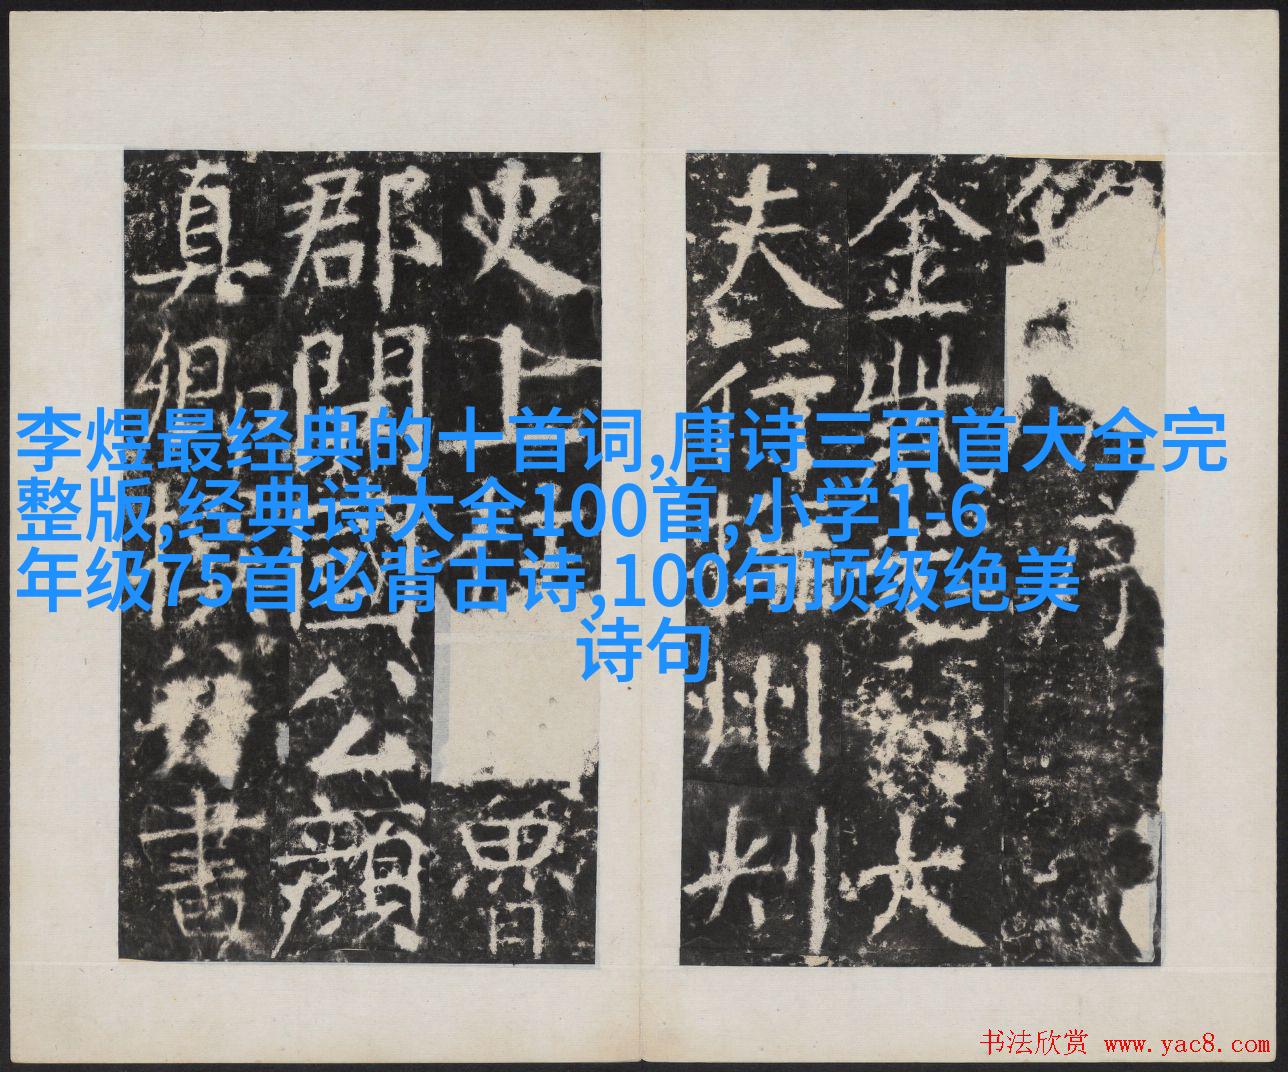 李煜最经典的十首词,唐诗三百首大全完
整版,经典诗大全100首,小学1-6
年级75首必背古诗,100句顶级绝美
诗句
金大
夫行州刺
史上柱魯
郡開國公顏
真卿書
书法欣赏 www.yac8.com